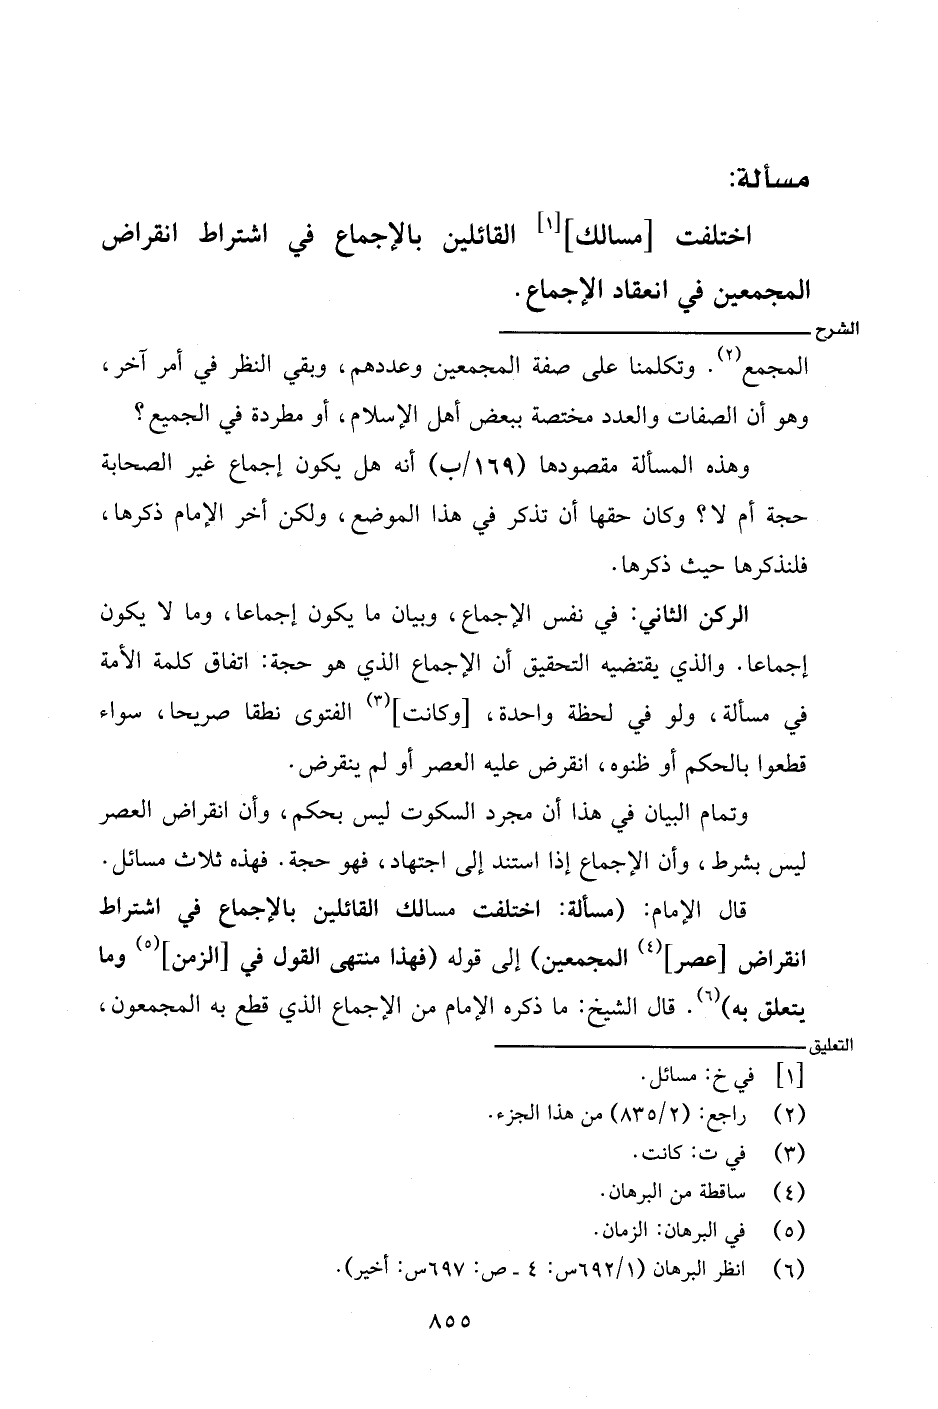 مسألة:
اختلفت [مسالك][١] القائلين بالإجماع في اشتراط انقراض
المجمعين في انعقاد الإجماع.
الشرح
المجمع(٢). وتكلمنا على صفة المجمعين وعددهم، وبقي النظر في أمر آخر،
وهو أن الصفات والعدد مختصة ببعض أهل الإسلام، أو مطردة في الجميع؟
وهذه المسألة مقصودها (١٦٩/ب) أنه هل يكون إجماع غير الصحابة
حجة أم لا؟ وكان حقها أن تذكر في هذا الموضع، ولكن أخر الإمام ذكرها،
فلنذكرها حيث ذكرها.
الركن الثاني: في نفس الإجماع، وبيان ما يكون إجماعا، وما لا يكون
إجماعا. والذي يقتضيه التحقيق أن الإجماع الذي هو حجة: اتفاق كلمة الأمة
في مسألة، ولو في لحظة واحدة، [وكانت](٣) الفتوى نطقا صريحا، سواء
قطعوا بالحكم أو ظنوه، انقرض عليه العصر أو لم ينقرض.
وتمام البيان في هذا أن مجرد السكوت ليس بحكم، وأن انقراض العصر
ليس بشرط، وأن الإجماع إذا استند إلى اجتهاد، فهو حجة. فهذه ثلاث مسائل.
قال الإمام: (مسألة: اختلفت مسالك القائلين بالإجماع في اشتراط
انقراض [عصر](٤) المجمعين) إلى قوله (فهذا منتهى القول في [الزمن](٥) وما
يتعلق به)(٦). قال الشيخ: ما ذكره الإمام من الإجماع الذي قطع به المجمعون،
التعليق
[١] في خ: مسائل.
(٢) راجع: (٨٣٥/٢) من هذا الجزء.
(٣) في ت: كانت.
(٤) ساقطة من البرهان.
(٥) في البرهان: الزمان.
(٦) انظر البرهان (٦٩٢/١س: ٤ ـ ص: ٦٩٧س: أخير).
٨٥٥